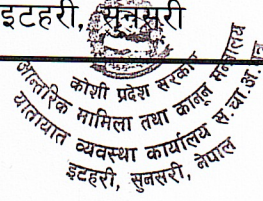 इटहरी, सुनसरी
कोशी प्रदेश सरकार
आन्तरिक मामिला तथा कानून मन्त्रालय
यातायात व्यवस्था कार्यालय स.चा.अ.
इटहरी, सुनसरी, नेपाल